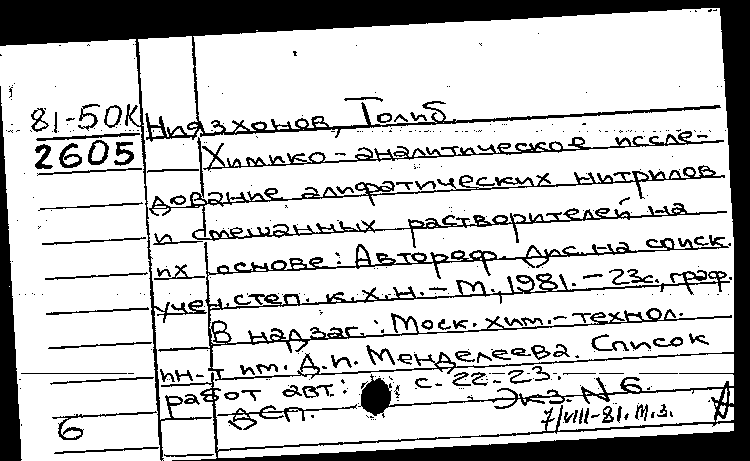 81-50К Ниязхонов, Толиб.
2605 Химико-аналитическое иссле-
дование алифатических нитрилов
и смешанных растворителей на
их основе: Автореф. дис. на соиск.
учен. степ. к.х.н. – М., 1981. – 23с., граф.
В надзаг.: Моск. хим.-технол.
ин-т им. Д.И. Менделеева. Список
работ авт.: с. 22-23.
ДСП. Экз. N 6.
6 7/VIII-81. М.З.